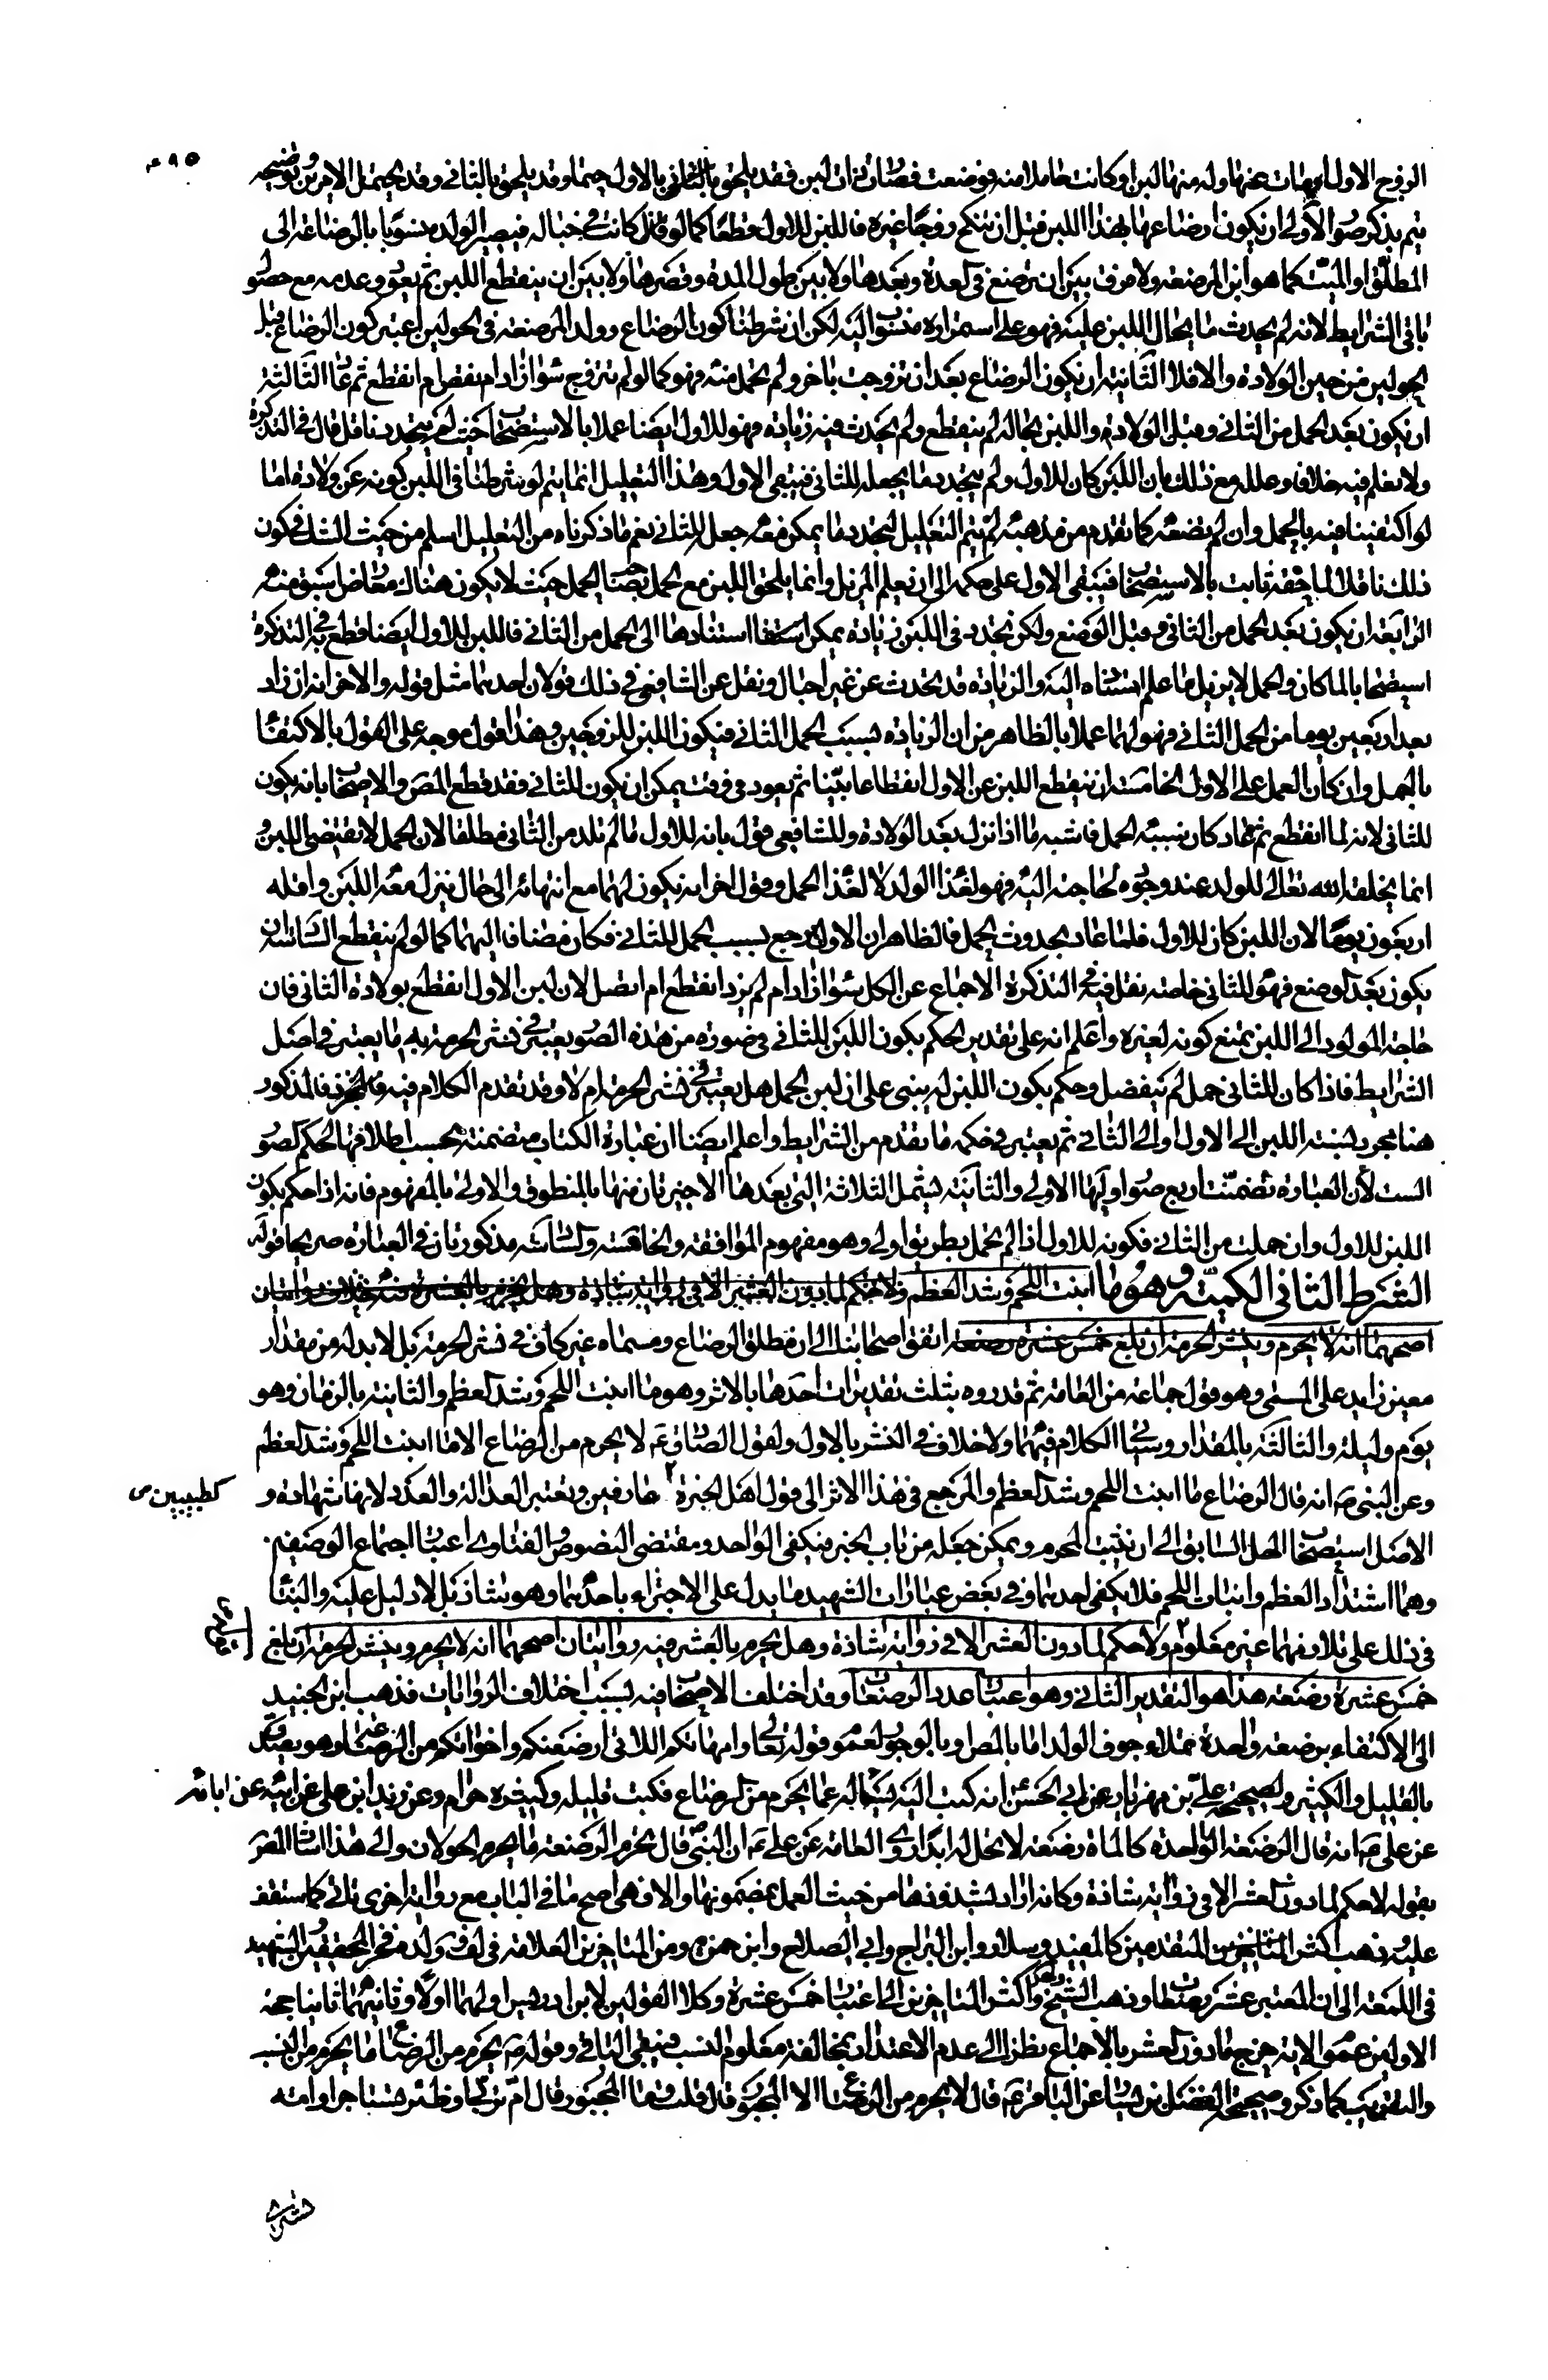 الزوج الاول او مات عنها وله منها لبن او كانت حاملا منه فوضعت فصارت ذات لبن فقد يلحق بالاول حتما وقد يلحق بالثاني وقد يحتمل الامرين وتوضيحه
يتم بذكر صور الاولى ان يكون ارضاعها بهذا اللبن قبل ان تنكح زوجا غيره فاللبن للاول قطعا كما لو كانت في حباله فيصير الولد منسوبا بالرضاعة الى
المطلق او الميت كما هو ابن المرضعة ولا فرق بين ان ترضع في العدة وبعدها ولا بين طول المدة وقصرها ولا بين ان ينقطع اللبن ثم يعود وعدمه مع حصول
باقي الشرايط لانه لم يحدث ما يحال اللبن عليه فهو على استمراره منسوب اليه لكن ان شرطنا كون الرضاع وولد المرضعة في الحولين اعتبر كون الرضاع قبل
الحولين من حين الولادة والا فلا الثانية ان يكون الرضاع بعد ان تزوجت باخر ولم تحمل منه فهو كما لو لم تتزوج سواء زاد ام نقص ام انقطع ثم عاد الثالثة
ان يكون بعد الحمل من الثاني وقبل الولادة واللبن بحاله لم ينقطع ولم يحدث فيه زيادة فهو للاول ايضا عملا بالاستصحاب حيث لم يتجدد ناقل قال في التذكرة
ولا نعلم فيه خلافا وعلله مع ذلك بان اللبن كان للاول ولم يتجدد ما يجعله للثاني فيبقى الاول وهذا التعليل انما يتم لو شرطنا في اللبن كونه عن ولادة اما
لو اكتفينا فيه بالحمل وان لم تضعه كما تقدم من مذهبه لم يتم التعليل لتجدد ما يمكن معه جعل للثاني نعم ما ذكرناه من التعليل اسلم من حيث الشك في كون
ذلك ناقلا لما حقه ثابت بالاستصحاب فيبقى الاول على حكمه الى ان نعلم المزيل وانما يلحق اللبن مع الحمل بصاحب الحمل حيث لا يكون هناك معارض اسبق منه
الرابعة ان يكون بعد الحمل من الثاني وقبل الوضع ولكن تجدد في اللبن زيادة يمكن استنادها الى الحمل من الثاني فاللبن للاول ايضا قطع به في التذكرة
استصحابا لما كان والحمل لا يزيل ما علم استناده اليه والزيادة قد تحدث من غير احبال ونقل عن الشافعي في ذلك قولان احدهما مثل قوله والاخر انه ان زاد
بعد اربعين يوما من الحمل الثاني فهو لهما عملا بالظاهر من ان الزيادة بسبب الحمل الثاني فيكون اللبن للزوجين وهذا قول موجه على القول بالاكتفاء
بالحمل وان كان العمل على الاول الخامسة ان ينقطع اللبن عن الاول انقطاعا بينا ثم يعود في وقت يمكن ان يكون للثاني فقد قطع المص والاصحاب بانه يكون
للثاني لانه لما انقطع ثم عاد كان سببه الحمل فاشبه ما اذا نزل بعد الولادة وللشافعي قول بانه للاول ما لم تلد من الثاني مطلقا لان الحمل لا يقتضي اللبن و
انما يخلقه الله تعالى للولد عند وجوده لحاجته اليه فهو لغذاء الولد لا لغذاء الحمل وقول اخر انه يكون لهما مع انتهائه الى حال ينزل معه اللبن واقله
اربعون يوما لان اللبن كان للاول فلما عاد بحدوث الحمل فالظاهر ان الاول رجع بسبب الحمل للثاني فكان مضافا اليهما كما لو لم ينقطع السادسة ان
يكون بعد الوضع فهو للثاني خاصة نقل فيه في التذكرة الاجماع عن الكل سواء زاد ام لم يزد انقطع ام اتصل لان لبن الاول انقطع بولادة الثاني فان
حاجة المولود الى اللبن تمنع كونه لغيره واعلم انه على تقدير الحكم بكون اللبن للثاني في صورة من هذه الصور يعتبر في نشر الحرمة به ما يعتبر في اصل
الشرايط فاذا كان للثاني حمل لم ينفصل وحكم بكون اللبن له ينبى على ان لبن الحمل هل يعتبر في نشر الحرمة ام لا وقد تقدم الكلام فيه فالمذكور
هنا مجرد نسبة اللبن الى الاول او الى الثاني ثم يعتبر في حكمه ما تقدم من الشرايط واعلم ايضا ان عبارة الكتاب متضمنة بحسب اطلاقها الحكم لصور
الست لان العبارة تضمنت اربع صور اولها الاولى والثانية تشمل الثلاثة التي بعدها الاخيرتان منها بالمنطوق والاولى بالمفهوم فانه اذا حكم بكون
اللبن للاول وان حملت من الثاني فكونه للاول اذا لم تحمل بطريق اولى وهو مفهوم الموافقة والخامسة والسادسة مذكورتان في العبارة صريحا قوله
الشرط الثاني الكمية وهو ما انبت اللحم وشد العظم ولا حكم لما دون العشر الا في رواية شاذة وهل يحرم بالعشر فيه روايتان
اصحهما انه لا يحرم وينشر الحرمة ان بلغ خمس عشرة رضعة اتفق اصحابنا الى ان مطلق الرضاع ومسماه غير كاف في نشر الحرمة بل لا بد له من مقدار
معين زايد على المسمى وهو قول جماعة من العامة ثم قدروه بثلث تقديرات احدها بالاثر وهو ما انبت اللحم وشد العظم والثانية بالزمان وهو
يوم وليلة والثالثة بالمقدار وسياتي الكلام فيهما ولا خلاف في النشر بالاول ولقول الصادق ع لا يحرم من الرضاع الا ما انبت اللحم وشد العظم
وعن النبي ص انه قال الرضاع ما انبت اللحم وشد العظم والمرجع في هذا الاثر الى قول اهل الخبرة عارفين وتعتبر العدالة والعدد لانها شهادة و
كطبيبين ص
الاصل استصحاب الحل السابق الى ان يثبت المحرم ويمكن جعله من باب الخبر فيكفي الواحد ومقتضى النصوص والفتاوى اعتبار اجتماع الوصفين
وهما اشتداد العظم وانبات اللحم فلا يكفي احدهما وفي بعض عبارات الشهيد ما يدل على الاجتزاء باحدهما وهو شاذ بل لا دليل عليه والبناء
في ذلك على تلازمهما غير معلوم ولا حكم لما دون العشر الا في رواية شاذة وهل يحرم بالعشر فيه روايتان اصحهما انه لا يحرم وينشر الحرمة ان بلغ
خمس عشرة رضعة هذا هو التقدير الثاني وهو اعتبار عدد الرضعات وقد اختلف الاصحاب فيه بسبب اختلاف الروايات فذهب ابن الجنيد
الى الاكتفاء برضعة واحدة تملاء جوف الولد اما بالمص او بالوجور لعموم قوله تعالى وامهاتكم اللاتي ارضعنكم واخواتكم من الرضاعة وهو يصدق
بالقليل والكثير ولصحيحة علي بن مهزيار عن ابي الحسن ع انه كتب اليه يساله عما يحرم من الرضاع فكتب قليله وكثيره حرام وعن زيد ابن علي عن ابيه عن ابائه
عن علي ع انه قال الرضعة الواحدة كالماة رضعة لا تحل له ابدا وروى العامة عن علي ع ان النبي ص قال يحرم الرضعة ما يحرم الحولان والى هذا اشار المص
بقوله لا حكم لما دون العشر الا في رواية شاذة وكانه اراد بشذوذها من حيث العمل بمضمونها والا فهي اصح ما في الباب مع رواية اخرى تاتي كما ستقف
عليه وذهب اكثر المتقدمين كالمفيد وسلار وابن البراج وابي الصلاح وابن حمزه ومن المتاخرين العلامة في لف وولده فخر المحققين والشهيد
في اللمعة الى ان المعتبر عشر رضعات وذهب الشيخ واكثر المتاخرين الى اعتبار خمس عشرة وكلا القولين لابن ادريس اولهما اولا وثانيهما ثانيا حجة
الاولين عموم الاية خرج ما دون العشر بالاجماع نظرا الى عدم الاعتداد بمخالفة معلوم النسب فيبقى الباقي وقوله ص يحرم من الرضاع ما يحرم من النسب
والتقريب كما ذكر وصحيحة الفضيل بن يسار عن الباقر ع قال لا يحرم من الرضاع الا المجبور قال قلت وما المجبور قال ام تربي او ظئر تستاجر او امة
تشترى